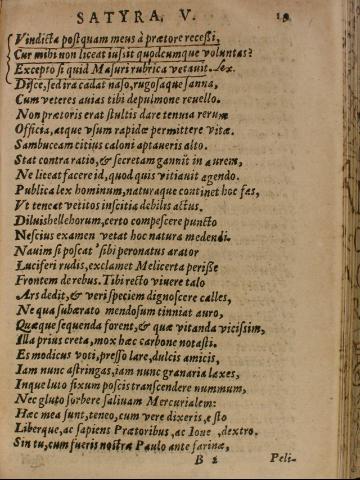 SATYRA. V. 19
Vindicta postquam meus à prætore recessi,
Cur mihi non liceat iussit quodcumque voluntas?
Excepto si quid Masuri rubrica vetauit. Lex.
Disce, sed ira cadat naso, rugosaque sanna,
Cum veteres auias tibi de pulmone reuello.
Non prætoris erat stultis dare tennia rerum
Officia, atque vsum rapidæ permittere vitæ.
Sambucam citius caloni aptaueris alto.
Stat contra ratio, & secretam gannit in aurem,
Ne liceat facere id, quod quis vitiauit agendo.
Publica lex hominum, naturaque continet hoc fas,
Vt teneat vetitos inscitia debilis actus.
Diluis helleborum, certo compescere puncto
Nescius examen vetat hoc natura medendi.
Nauim si poscat sibi peronatus arator
Luciferi rudis, exclamet Melicerta perisse
Frontem de rebus. Tibi recto viuere talo
Ars dedit, & veri speciem dignoscere calles,
Ne qua subærato mendosum tinniat auro,
Quæque sequenda forent, & quæ vitanda vicissim,
Illa prius creta, mox hæc carbone notasti.
Es modicus voti, presso lare, dulcis amicis,
Iam nunc astringas, iam nunc granaria laxes,
Inque luto fixum poscis transcendere nummum,
Nec gluto sorbere saliuam Mercurialem:
Hæc mea sunt, teneo, cum vere dixeris, esto
Liberque, ac sapiens Prætoribus, ac Ioue, dextro.
Sin tu, cum fueris nostræ Paulo ante farinæ,
B 2 Peli-